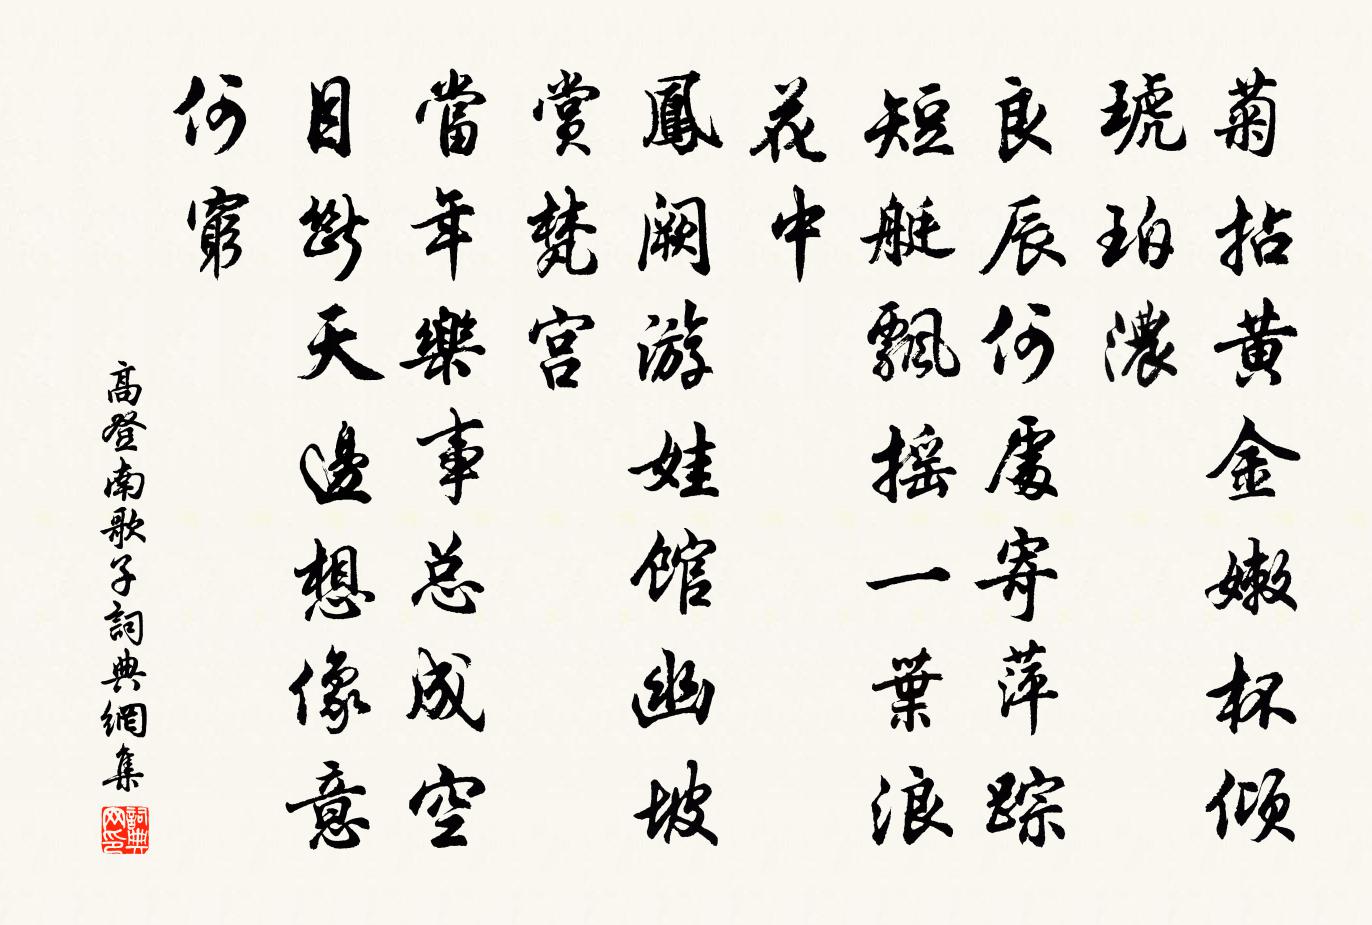 菊拈黄金嫩杯倾
琥珀濃
良辰何處寄萍踪
短艇飄摇一葉浪
花中
鳳阙游娃馆幽坡
赏梵宫
當年樂事总成空
目斷天邊想像意
何窮
高登南歌子詞典網集
詞典网印